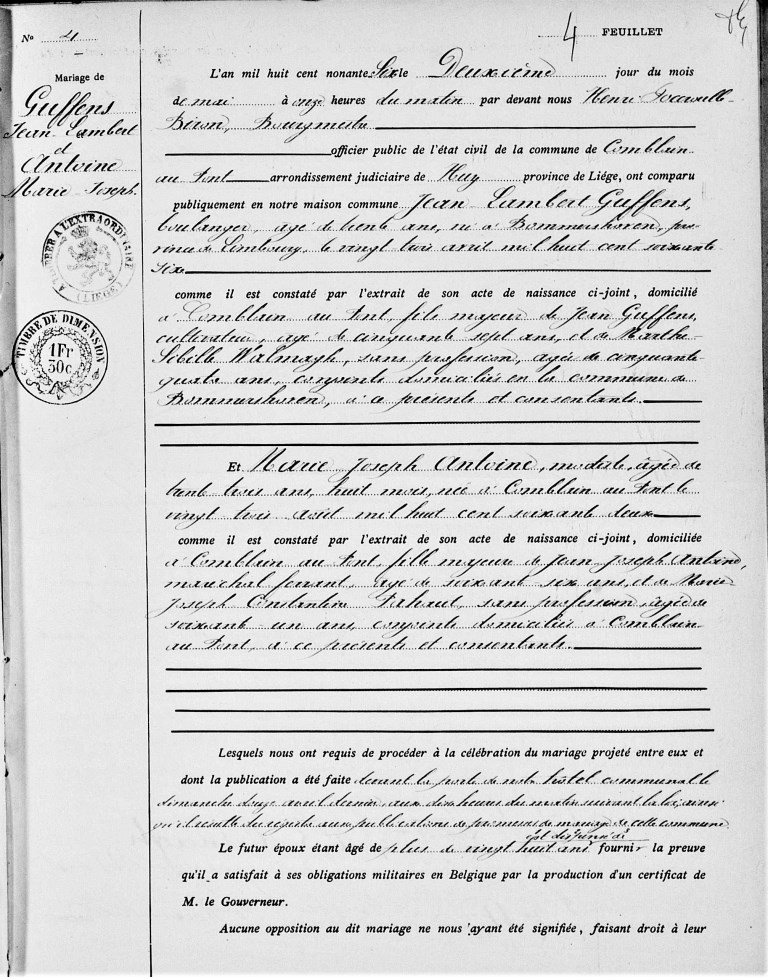 4 FEUILLET
N° 4
Mariage de
Guffens
Jean Lambert
et
Antoine
Marie Joseph.
A TIMBRER A L'EXTRAORDINAIRE
(LIÉGE)
TIMBRE DE DIMENSION
1Fr
30c
L'an mil huit cent nonante Six le Deuxième jour du mois
de mai à onze heures du matin par devant nous Henri
Biron, Bourgmestre
officier public de l'état civil de la commune de Comblain
au Pont arrondissement judiciaire de Huy province de Liége, ont comparu
publiquement en notre maison commune Jean Lambert Guffens,
boulanger, agé de trente ans, né à Bommershoven, pro-
vince de Limbourg, le vingt trois avril mil huit cent soixante
six
comme il est constaté par l'extrait de son acte de naissance ci-joint, domicilié
à Comblain au Pont fils majeur de Jean Guffens,
cultivateur, agé de cinquante sept ans, et de Marthe
Sibille Walmagh, sans profession, agée de cinquante
quatre ans, conjoints domiciliés en la commune de
Bommershoven, à ce présents et consentants.
Et Marie Joseph Antoine, modiste, agée de
trente trois ans, huit mois, née à Comblain au Pont le
vingt trois août mil huit cent soixante deux
comme il est constaté par l'extrait de son acte de naissance ci-joint, domiciliée
à Comblain au Pont, fille majeure de Jean Joseph Antoine,
maréchal ferrant agé de soixante six ans, et de Marie
Joseph Constantine sans profession agée de
soixante un ans, conjoints domiciliés à Comblain
au Pont, à ce présents et consentants.
Lesquels nous ont requis de procéder à la célébration du mariage projeté entre eux et
dont la publication a été faite devant la porte de notre hôtel communal le
dimanche douze avril dernier, aux dix heures du matin suivant la loi, ainsi
qu'il résulte du registre aux publications de promesses de mariage de cette commune
est dispensé de
Le futur époux étant âgé de plus de vingt huit ans fournir la preuve
qu'il a satisfait à ses obligations militaires en Belgique par la production d'un certificat de
M. le Gouverneur.
Aucune opposition au dit mariage ne nous ayant été signifiée, faisant droit à leur